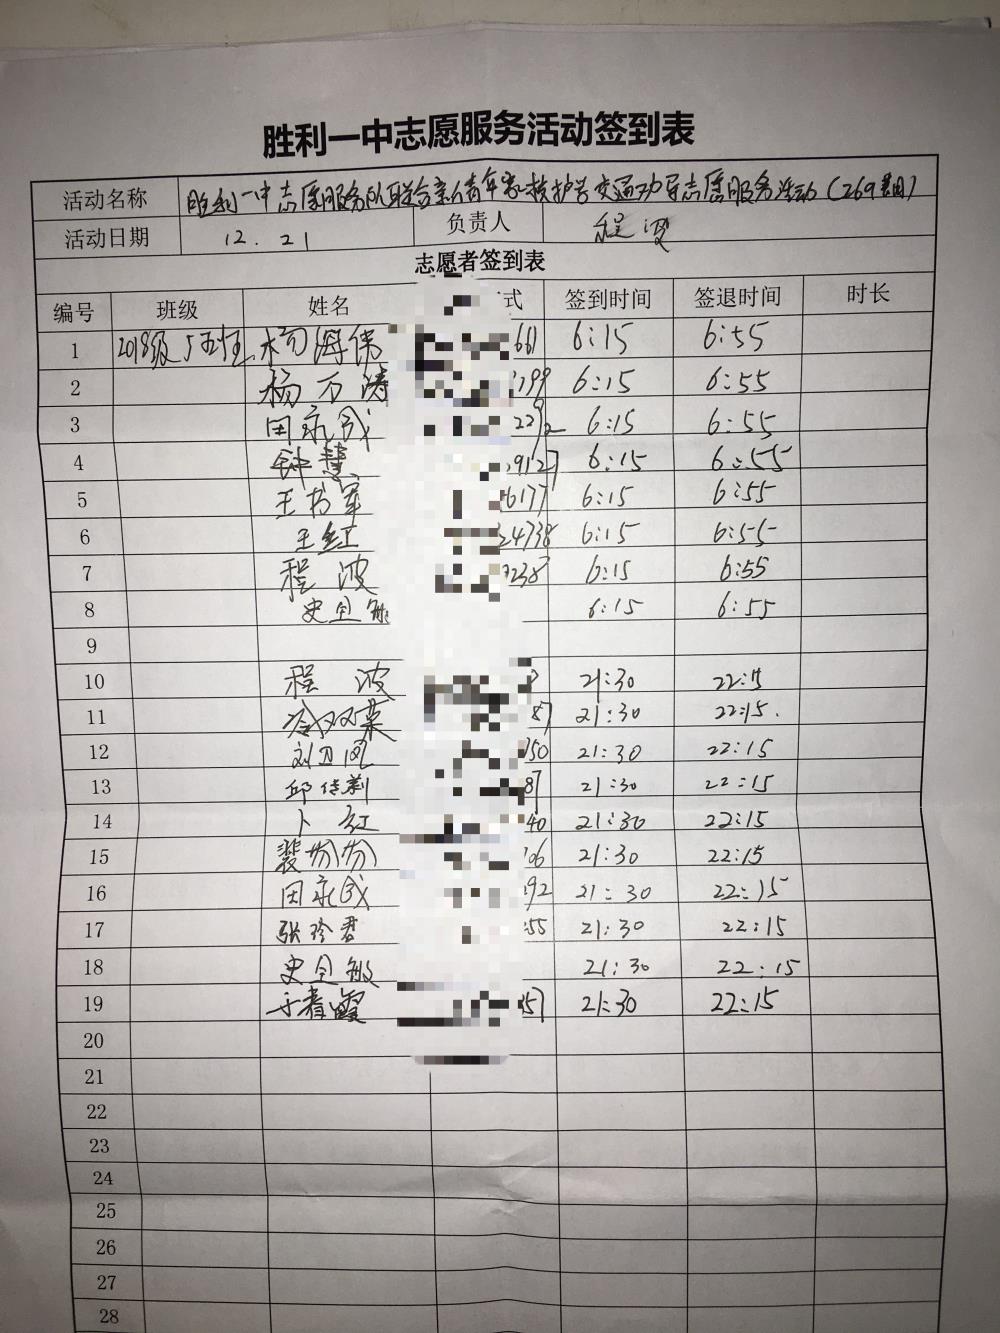 胜利一中志愿服务活动签到表
活动名称 胜利一中志愿服务队联合 护学 交通 志愿服务活动
活动日期 12.21 负责人 程波
志愿者签到表
编号 班级 姓名 式 签到时间 签退时间 时长
1 2018级5班 661 6:15 6:55
2 杨万涛 199 6:15 6:55
3 田永成 2292 6:15 6:55
4 钟慧 9127 6:15 6:55
5 王书军 6177 6:15 6:55
6 王红 24738 6:15 6:55
7 程波 238 6:15 6:55
8 史全敏 6:15 6:55
9
10 程波 21:30 22:15
11 冷双荣 87 21:30 22:15.
12 刘 凤 150 21:30 22:15
13 邱佳莉 87 21:30 22:15
14 卜红 40 21:30 22:15
15 裴份份 106 21:30 22:15
16 田永成 292 21:30 22:15
17 张珍君 55 21:30 22:15
18 史全敏 21:30 22:15
19 于春霞 57 21:30 22:15
20
21
22
23
24
25
26
27
28